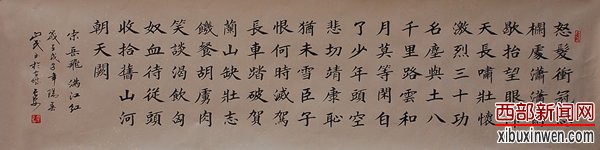 怒髮衝冠
欄處瀟瀟
歇抬望眼
天長嘯壯懷
激烈三十功
名塵與土八
千里路雲和
月莫等閑白
了少年頭空
悲切靖康恥
猶未雪臣子
恨何時滅駕
長車踏破賀
蘭山缺壯志
饑餐胡虜肉
笑談渴飲匈
奴血待從頭
收拾舊山河
朝天闕
宋岳飛滿江紅
西部新闻网
xibuxinwen.com